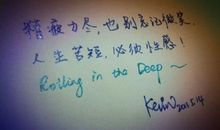 精疲力尽,也别忘记微笑,
人生苦短,必须性感!
Rolling in the Deep~
Kevin 2013.5.14